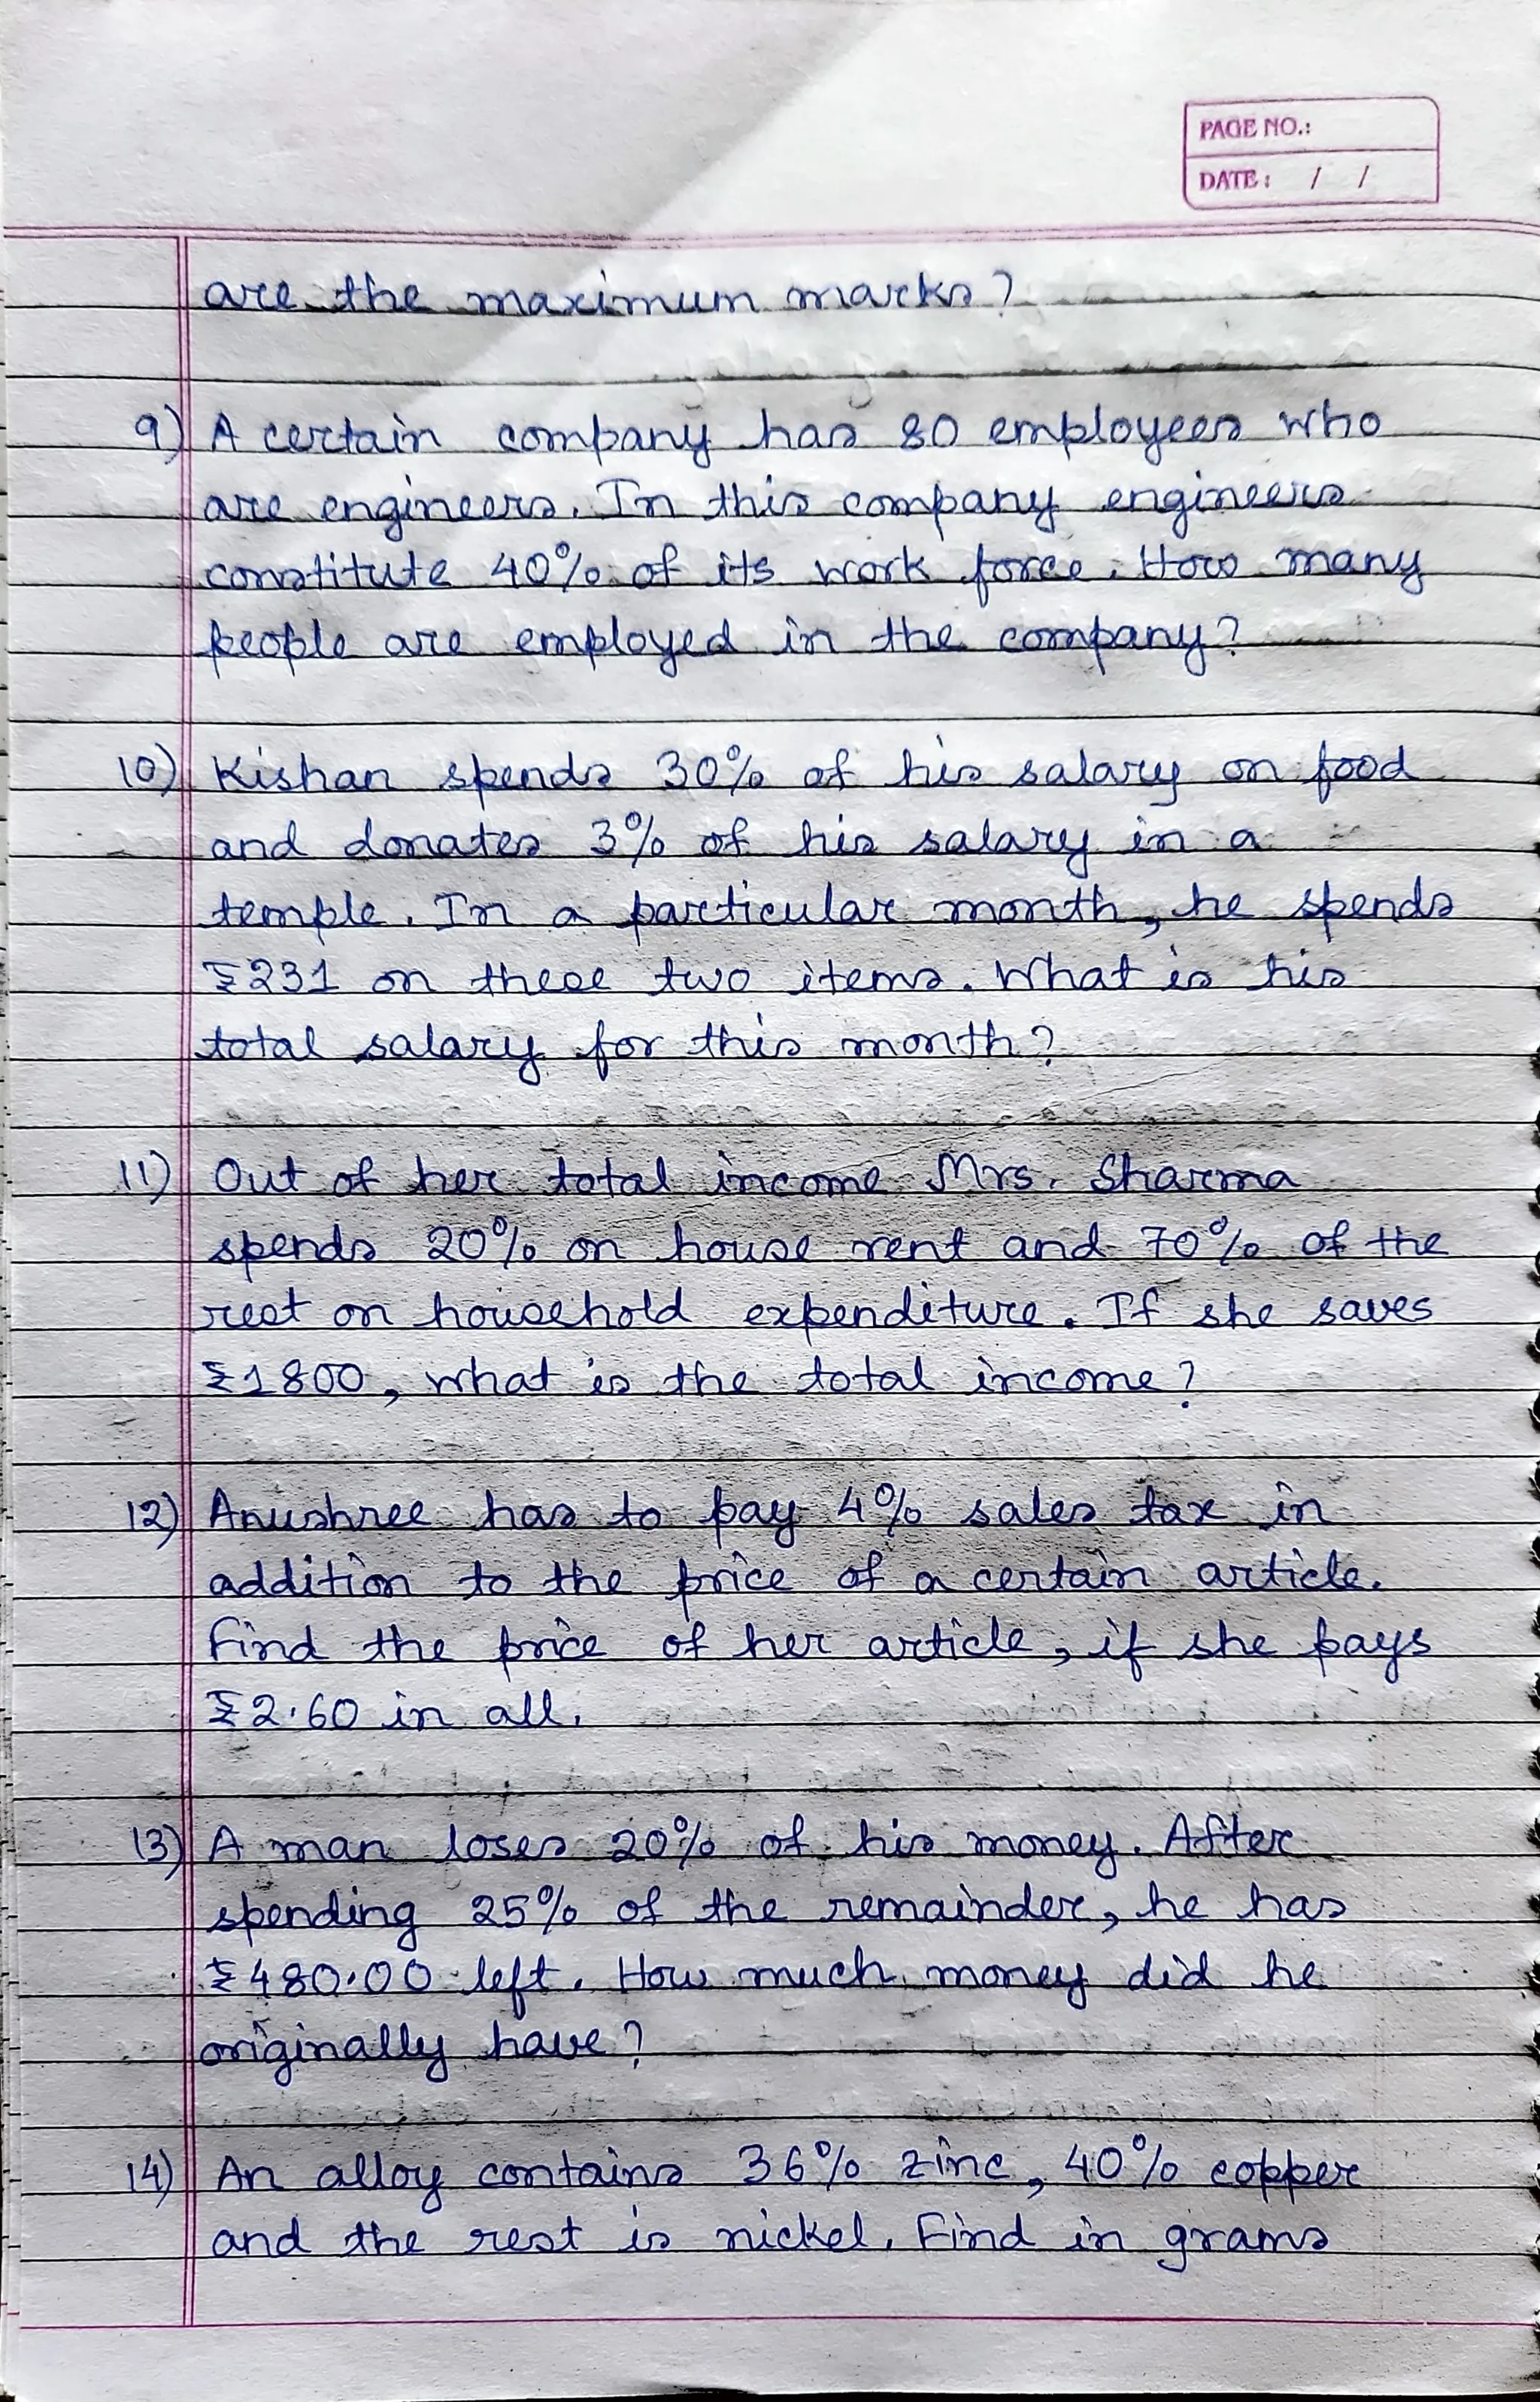 PAGE NO.:
DATE: / /
are the maximum marks?
9) A certain company has 80 employees who
are engineers. In this company engineers
constitute 40% of its work force. How many
people are employed in the company?
10) Kishan spends 30% of his salary on food
and donates 3% of his salary in a
temple. In a particular month, he spends
₹231 on these two items. What is his
total salary for this month?
11) Out of her total income Mrs. Sharma
spends 20% on house rent and 70% of the
rest on household expenditure. If she saves
₹1800, what is the total income?
12) Anushree has to pay 4% sales tax in
addition to the price of a certain article.
Find the price of her article, if she pays
₹2.60 in all.
13) A man loses 20% of his money. After
spending 25% of the remainder, he has
₹480.00 left. How much money did he
originally have?
14) An alloy contains 36% zinc, 40% copper
and the rest is nickel. Find in grams